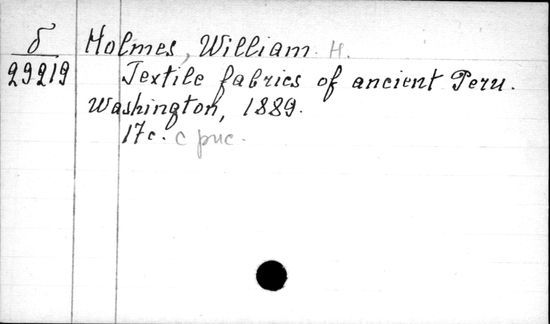 б
29219
Holmes, William H.
Textile fabrics of ancient Peru.
Washington, 1889.
17с. с рис.